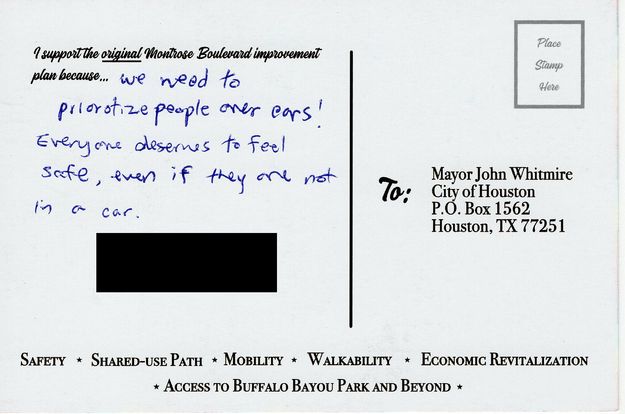 Place
Stamp
Here
I support the original Montrose Boulevard improvement
plan because... we need to
priorotize people over cars!
Everyone deserves to feel
safe, even if they are not
in a car.
To:
Mayor John Whitmire
City of Houston
P.O. Box 1562
Houston, TX 77251
Safety ⋆ Shared-use Path ⋆ Mobility ⋆ Walkability ⋆ Economic Revitalization
⋆ Access to Buffalo Bayou Park and Beyond ⋆